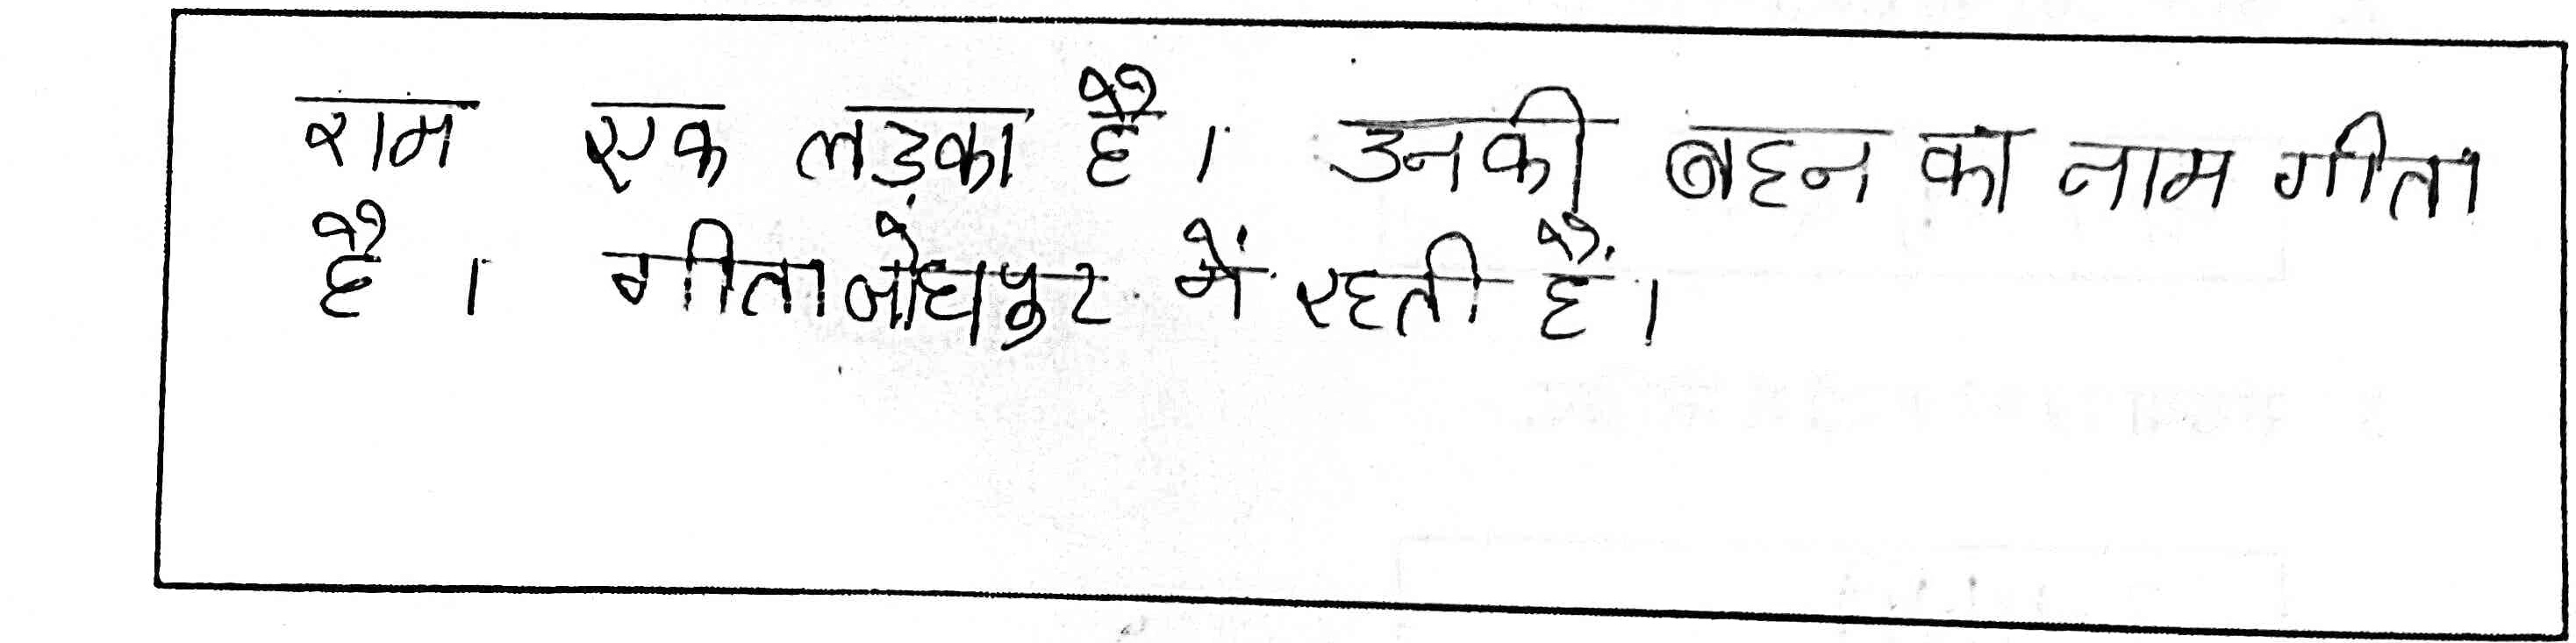 राम एक लड़का है। उनकी बहन का नाम गीता
है। गीता जोधपुर में रहती हैं।